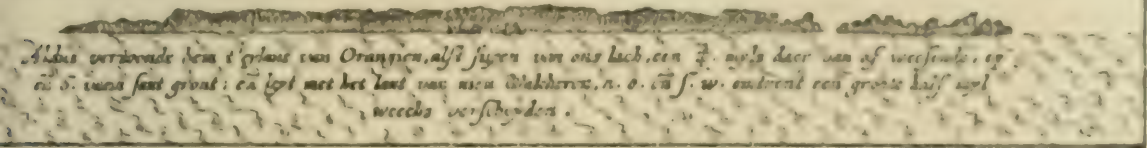 Aldus verthoonde hem t'eylant van Orangien, alst suyen van ons lach, een ¾. myls daer van af weesende, op
eñ 5. vaem sant gront: eñ leyt met het lant van nieu Walcheren, n. o. eñ s. w. omtrent een groote half myl
weechs verscheyden.